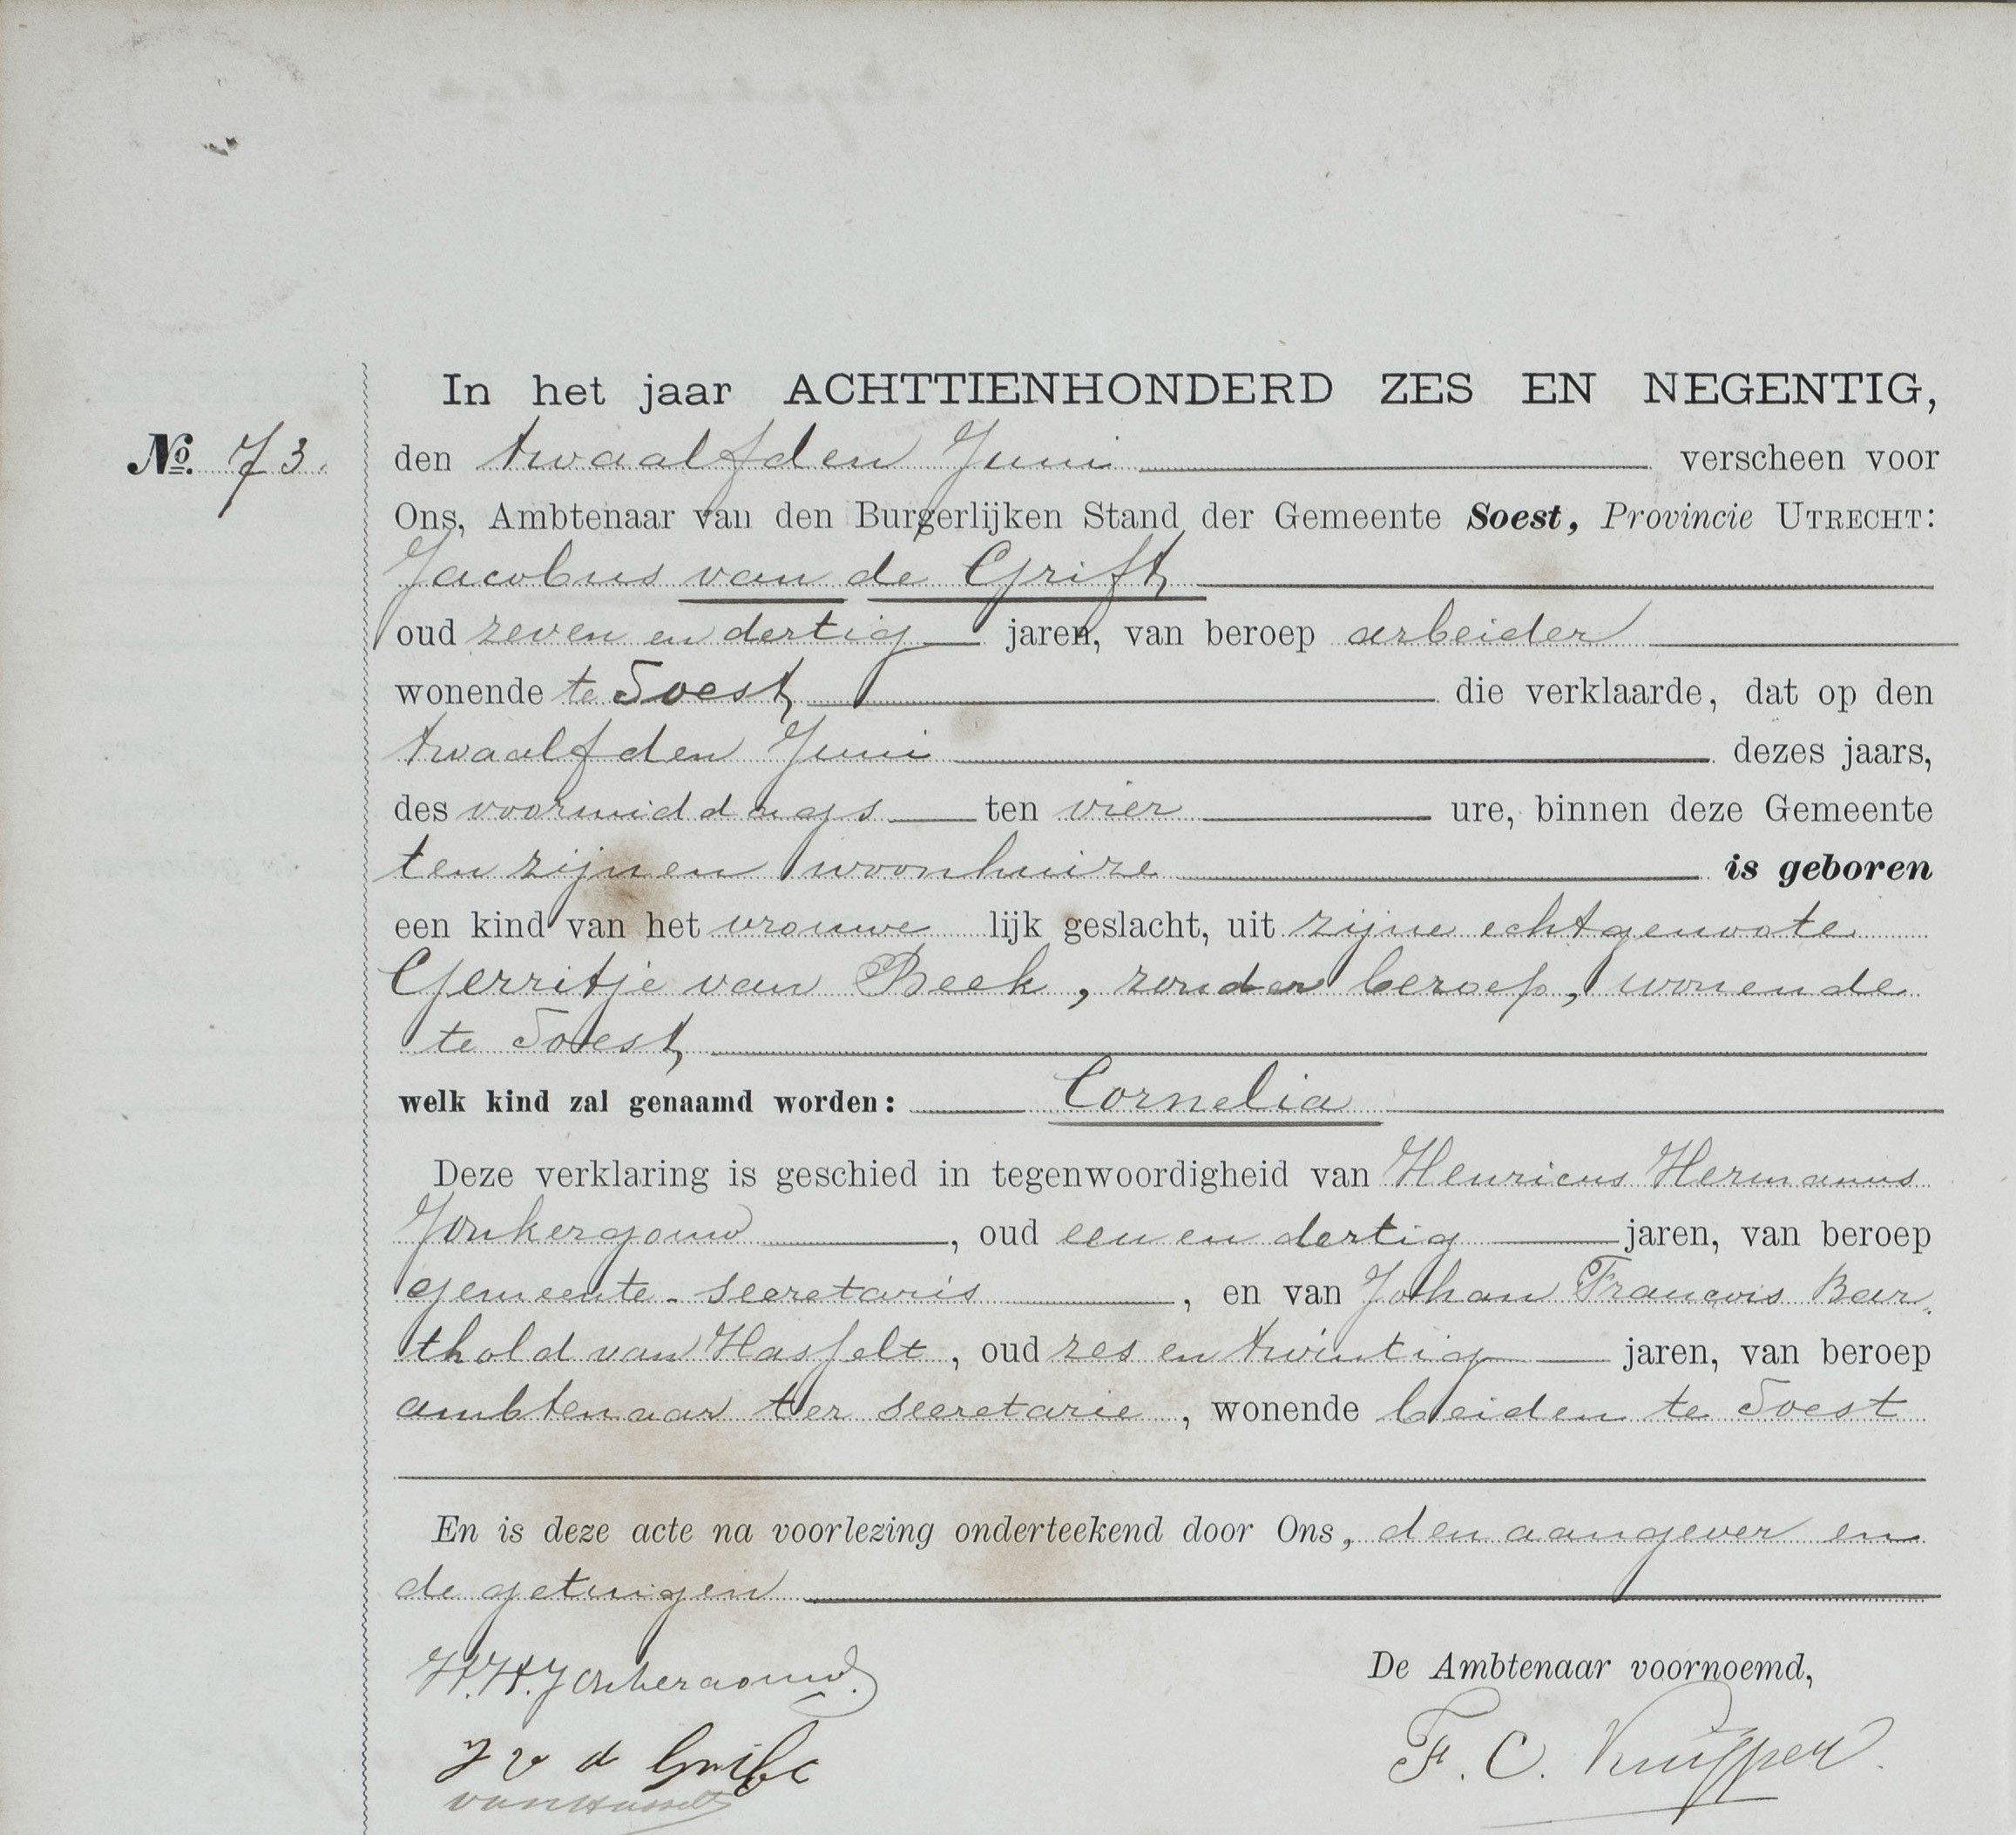 In het jaar ACHTTIENHONDERD ZES EN NEGENTIG,
No. 73. den twaalfden Juni verscheen voor
Ons, Ambtenaar van den Burgerlijken Stand der Gemeente Soest, Provincie UTRECHT:
Jacobus van de Grift
oud zeven en dertig jaren, van beroep arbeider
wonende te Soest die verklaarde, dat op den
twaalfden Juni dezes jaars,
des voormiddags ten vier ure, binnen deze Gemeente
ten zijnen woonhuize is geboren
een kind van het vrouwe lijk geslacht, uit zijne echtgenoote
Gerritje van Beek, zonder beroep, wonende
te Soest
welk kind zal genaamd worden: Cornelia
Deze verklaring is geschied in tegenwoordigheid van Henricus Hermanus
Jonkergouw, oud een en dertig jaren, van beroep
gemeente-secretaris, en van Johan Francois Bar-
thold van Hasselt, oud zes en twintig jaren, van beroep
ambtenaar ter secretarie, wonende beiden te Soest
En is deze acte na voorlezing onderteekend door Ons, den aangever en
de getuigen
H.H. Jonkergouw.
De Ambtenaar voornoemd,
J v d Grift
F. C. Kuijper.
van Hasselt